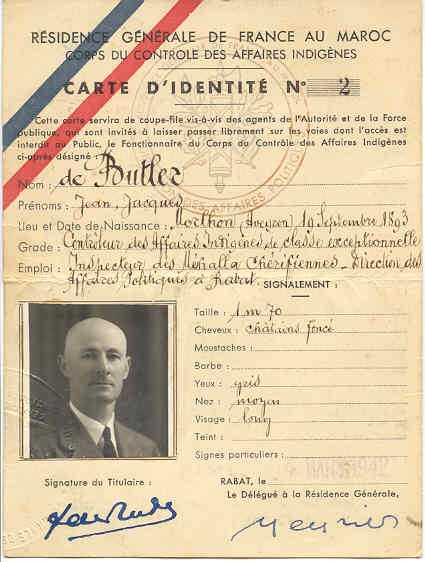 RÉSIDENCE GÉNÉRALE DE FRANCE AU MAROC
CORPS DU CONTROLE DES AFFAIRES INDIGÈNES
CARTE D'IDENTITÉ N° 2
Cette carte servira de coupe-file vis-à-vis des agents de l'Autorité et de la Force
publique, qui sont invités à laisser passer librement sur les voies dont l'accès est
interdit au Public, le Fonctionnaire du Corps du Contrôle des Affaires Indigènes
ci-après désigné :
Nom : de Butler
Prénoms : Jean, Jacques
Lieu et Date de Naissance : Morlhon Aveyron 19 Septembre 1893
Grade : Contrôleur des Affaires Indigènes de classe exceptionnelle
Emploi : Inspecteur des Méhalla Chérifiennes - Direction des
Affaires Politiques à Rabat.
SIGNALEMENT :
Taille : 1 m 70
Cheveux : châtains foncé
Moustaches :
Barbe :
Yeux : gris
Nez : moyen
Visage : long
Teint :
Signes particuliers :
RABAT, le MARS 1942
Le Délégué à la Résidence Générale,
Signature du Titulaire :
Meyrier